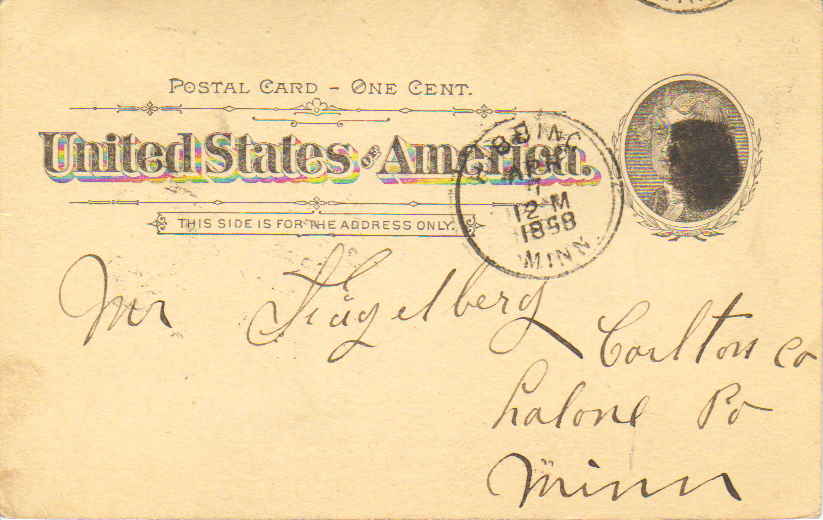 POSTAL CARD - ONE CENT.
United States OF America.
THIS SIDE IS FOR THE ADDRESS ONLY.
BBING
APR
12-M
1898
MINN.
Mr
Carlton Co
Lalone Po
Minn